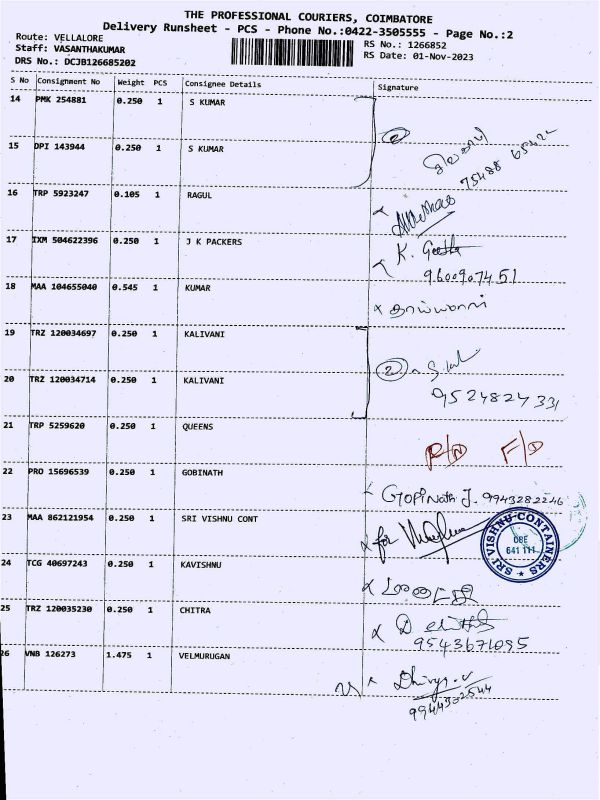 THE PROFESSIONAL COURIERS, COIMBATORE
Delivery Runsheet - PCS - Phone No.:0422-3505555 - Page No.:2
Route: VELLALORE
RS No.: 1266852
Staff: VASANTHAKUMAR
RS Date: 01-Nov-2023
DRS No.: DCJB126685202
S No Consignment No Weight PCS Consignee Details Signature
14 PMK 254881 0.250 1 S KUMAR
2
15 DPI 143944 0.250 1 S KUMAR
75488 65422
16 TRP 5923247 0.105 1 RAGUL
17 IXM 504622396 0.250 1 J K PACKERS K. Geetha
9600907451
18 MAA 104655040 0.545 1 KUMAR
19 TRZ 120034697 0.250 1 KALIVANI
2
20 TRZ 120034714 0.250 1 KALIVANI
9524824331
21 TRP 5259620 0.250 1 QUEENS
R/D F/D
22 PRO 15696539 0.250 1 GOBINATH
GOPINATH J. 9943282246
23 MAA 862121954 0.250 1 SRI VISHNU CONT
for
SRI VISHNU CONTAINERS
CBE
641 111
24 TCG 40697243 0.250 1 KAVISHNU
25 TRZ 120035230 0.250 1 CHITRA
D
9543671095
26 VNB 126273 1.475 1 VELMURUGAN
Dhivya.v
9944302544